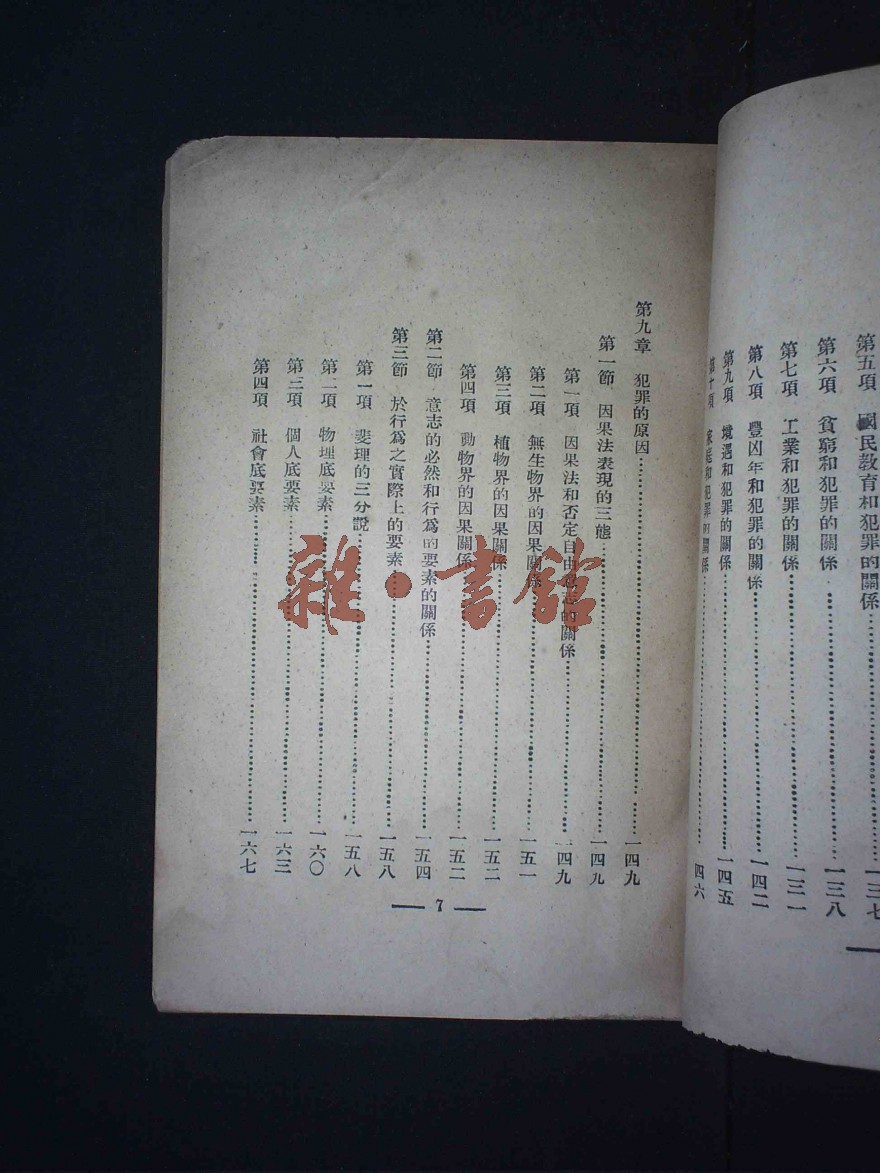 第五項 國民教育和犯罪的關係……一三七
第六項 貧窮和犯罪的關係……一三八
第七項 工業和犯罪的關係……一三一
第八項 豐凶年和犯罪的關係……一四二
第九項 境遇和犯罪的關係……一四五
第十項 家庭和犯罪的關係……四六
第九章 犯罪的原因……一四九
第一節 因果法表現的三態……一四九
第一項 因果法和否定自由意志的關係……一四九
第二項 無生物界的因果關係……一五一
第三項 植物界的因果關係……一五二
第四項 動物界的因果關係……一五二
第二節 意志的必然和行為的要素的關係……一五四
第三節 於行為之實際上的要素……一五八
第一項 斐理的三分說……一五八
第二項 物理底要素……一六〇
第三項 個人底要素……一六三
第四項 社會底要素……一六七
— 7 —
雜·書館